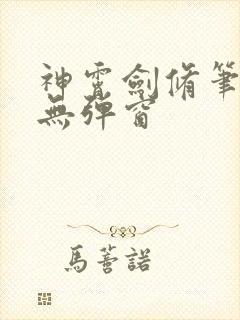 神霄劍脩筆
無彈窗
馬薈諾